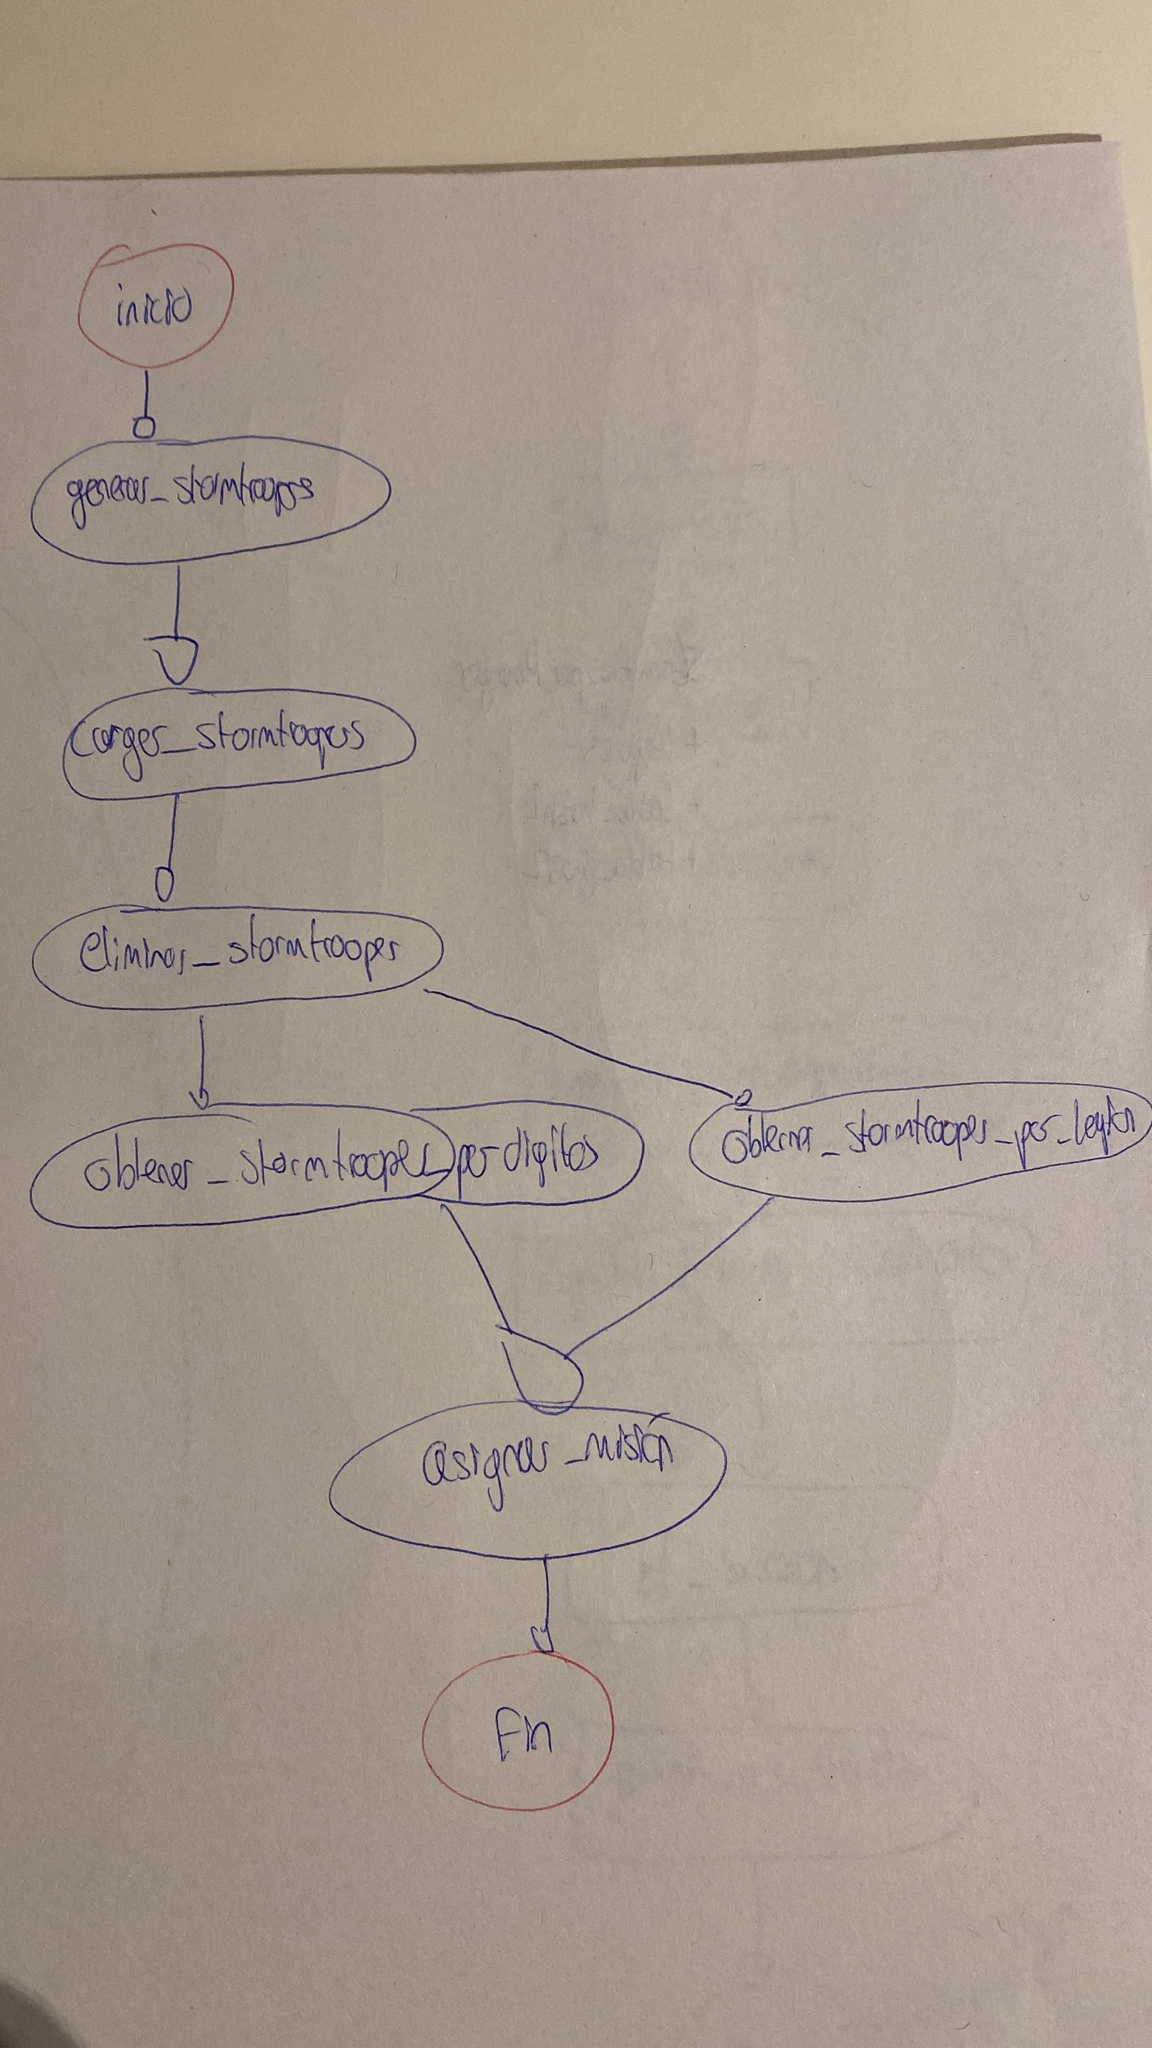 inicio
generar_stormtroopers
cargar_stormtroopers
eliminar_stormtrooper
obtener_stormtrooper_por digitos
obtener_stormtrooper_por_legión
asignar_misión
Fin